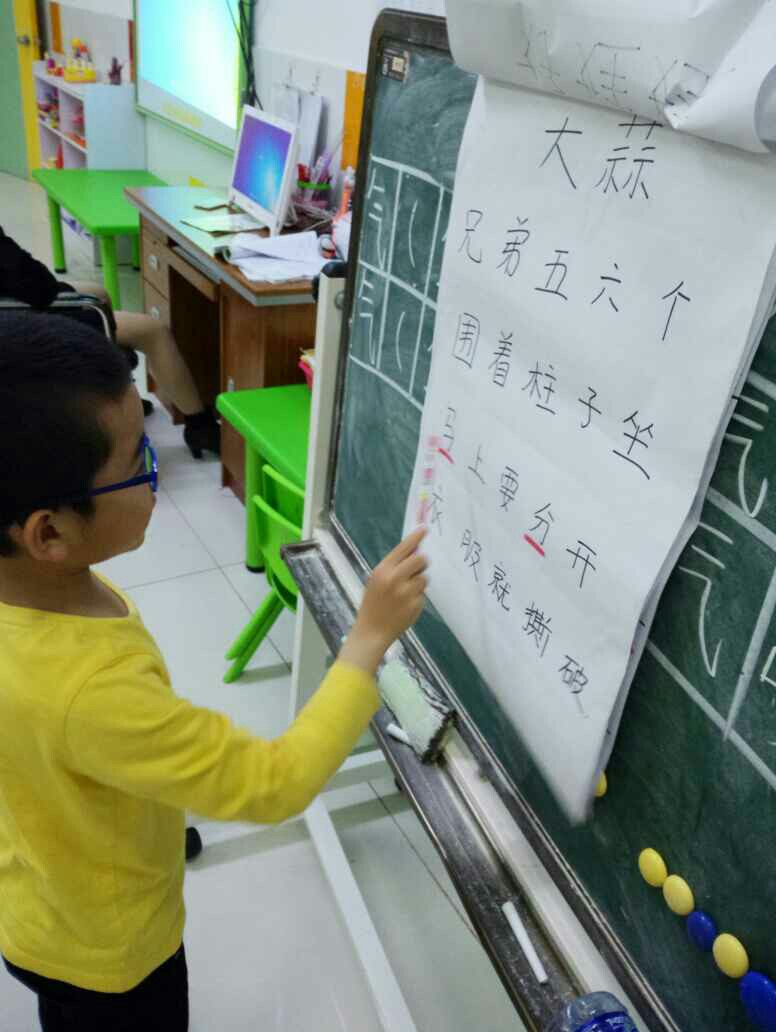 大蒜
兄弟五六个
围着柱子坐
马上要分开
衣服就撕破
气
气
气
气